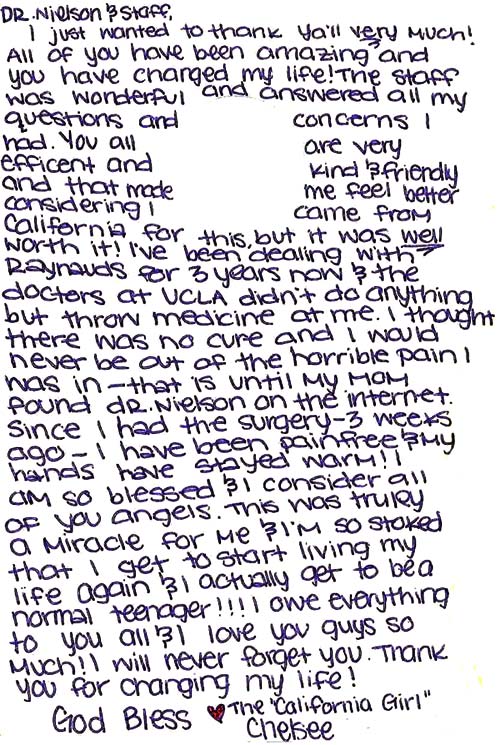 DR. Nielson & Staff,
I just wanted to thank ya'll very much!
All of you have been amazing and
you have changed my life! The staff
was wonderful and answered all my
questions and concerns I
had. You all are very
efficent and kind & friendly
and that made me feel better
considering I came from
California for this, but it was well
worth it! I've been dealing with
Raynauds for 3 years now & the
doctors at UCLA didn't do anything
but throw medicine at me. I thought
there was no cure and I would
never be out of the horrible pain I
was in - that is until my mom
found dr. Nielson on the internet.
Since I had the surgery - 3 weeks
ago - I have been painfree & my
hands have stayed warm!! I
am so blessed & I consider all
of you angels. This was truley
a miracle for me & I'm so stoked
that I get to start living my
life again & I actually get to be a
normal teenager!!! I owe everything
to you all & I love you guys so
much! I will never forget you. Thank
you for changing my life!
God Bless ♥ The "California Girl"
Chelsee